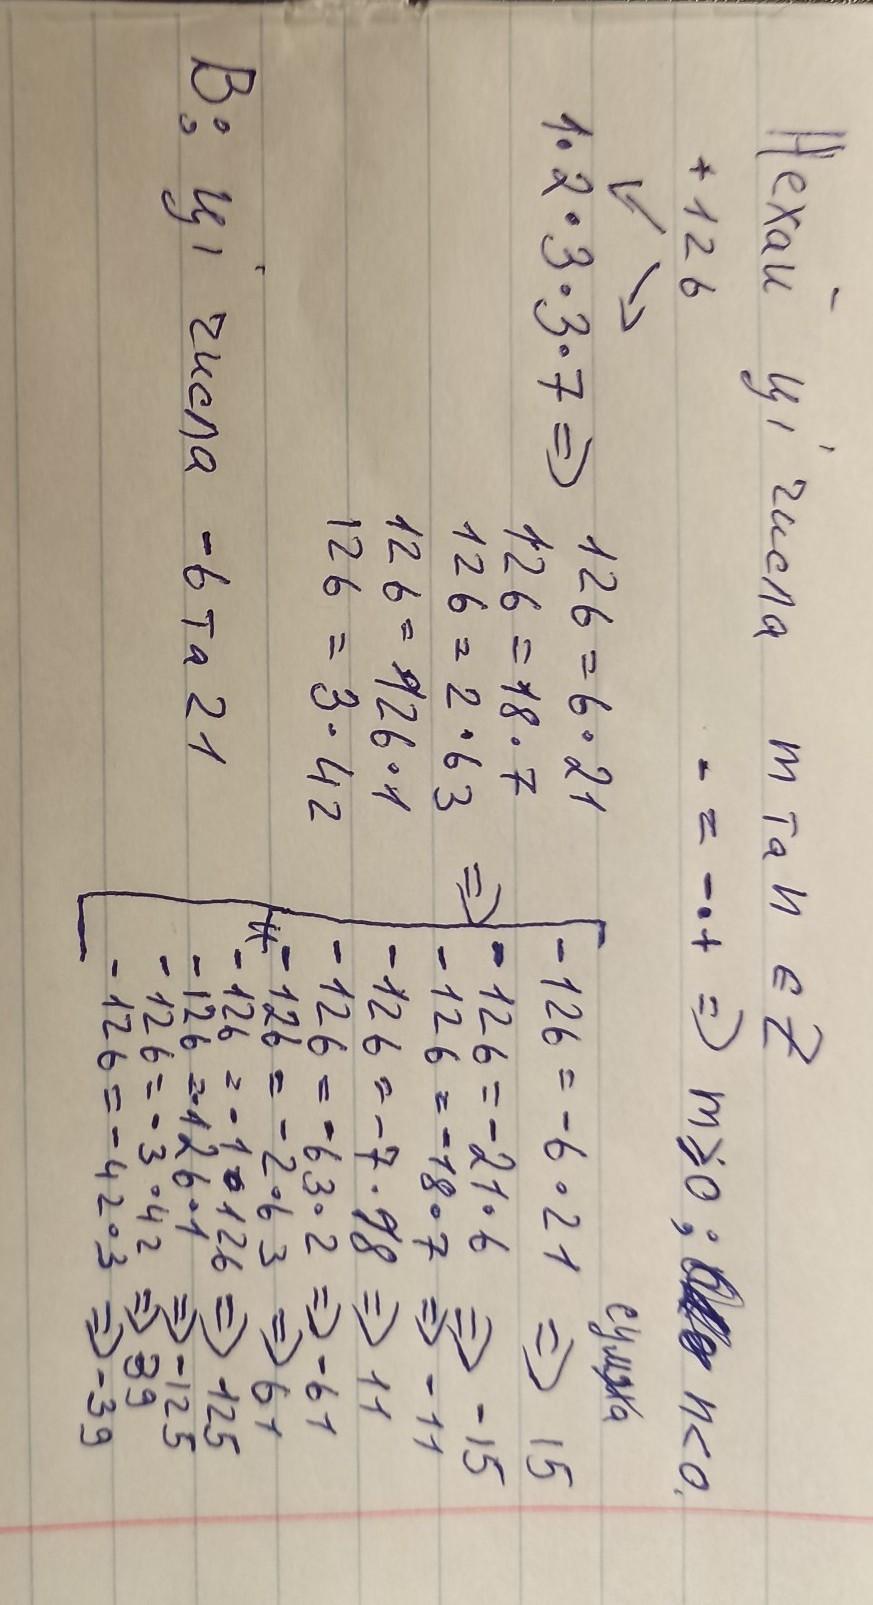 Нехай ці числа m та n ∈ Z
+126 - = -·+ ⇒ m≥0; n<0.
↙ ↘
1·2·3·3·7 ⇒
126 = 6·21
126 = 18·7
126 = 2·63
126 = 126·1
126 = 3·42
⇒
сума
-126 = -6·21 ⇒ 15
-126 = -21·6 ⇒ -15
-126 = -18·7 ⇒ -11
-126 = -7·18 ⇒ 11
-126 = -63·2 ⇒ -61
-126 = -2·63 ⇒ 61
-126 = -1·126 ⇒ 125
-126 = -126·1 ⇒ -125
-126 = -3·42 ⇒ 39
-126 = -42·3 ⇒ -39
В: ці числа -6 та 21